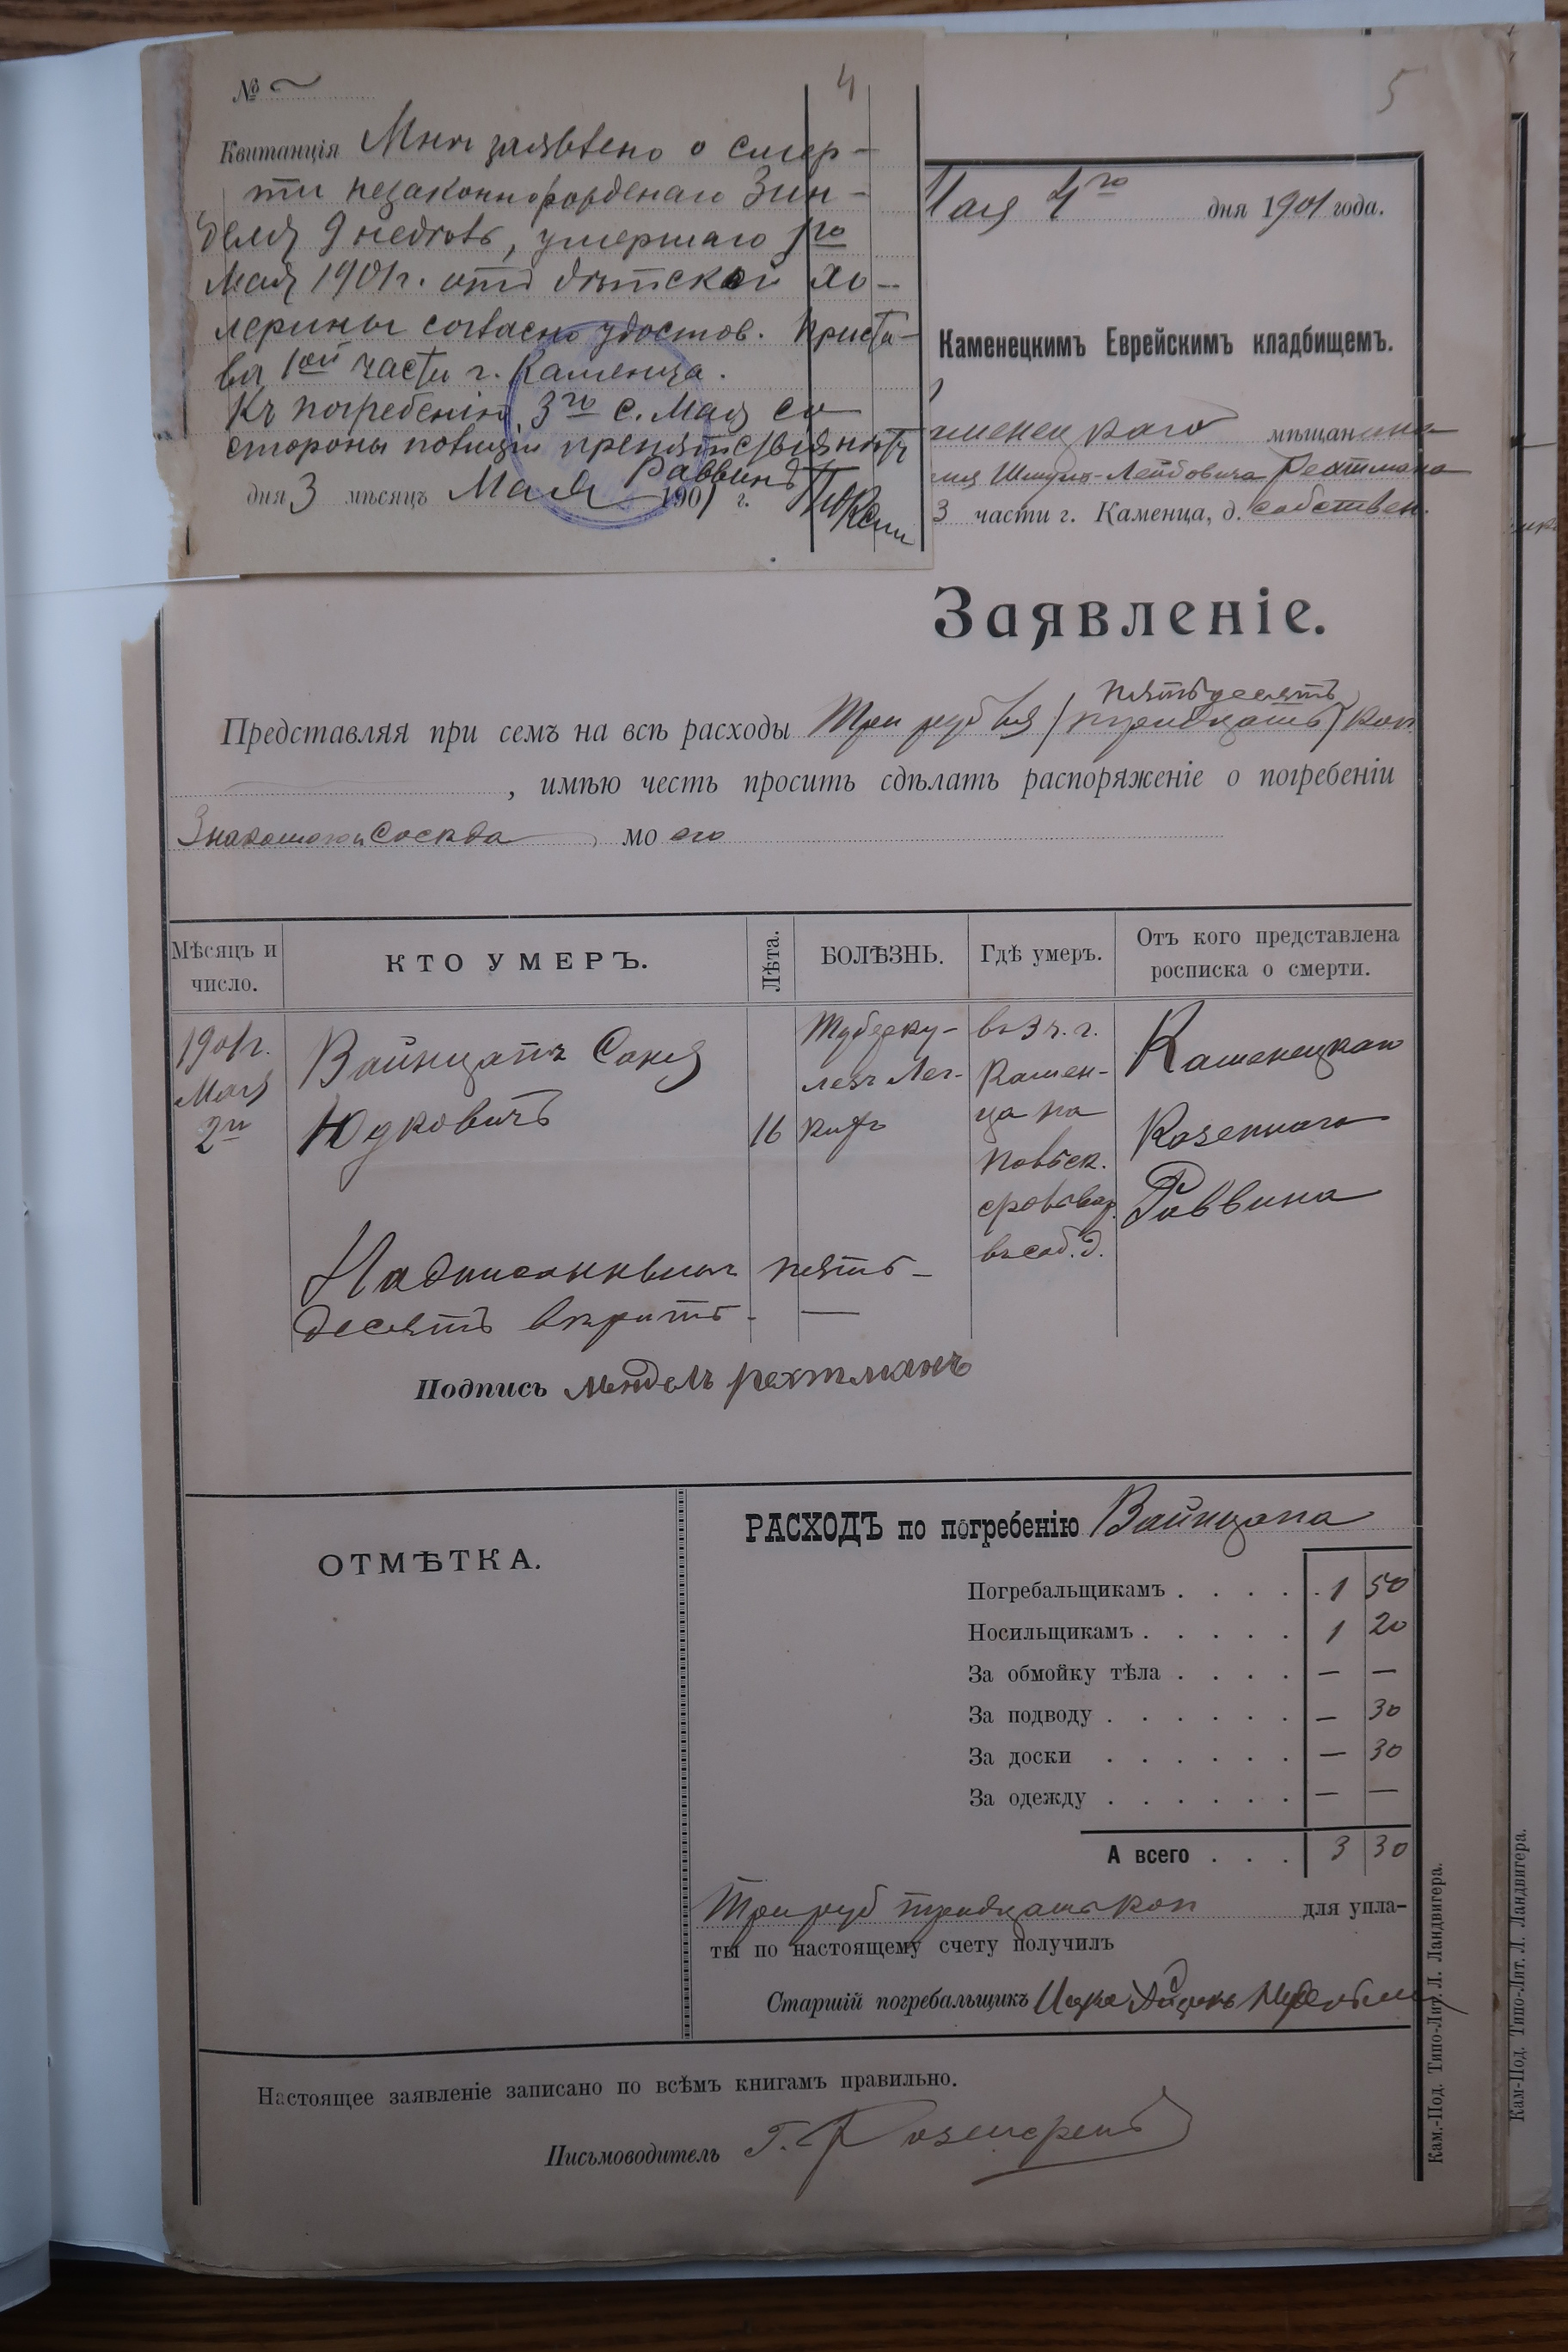 № ~
4
5
Квитанція Мнѣ заявлено о смер-
ти незаконнорожденаго Зин-
деля 9 недѣль, умершаго 1го
Мая 1901 г. отъ дѣтской хо-
лерины согласно удостов. Приста-
ва 1ой части г. Каменца.
Къ погребенію 3го с. Мая со
стороны полиціи препятствія нѣтъ
Раввинъ
дня 3 мѣсяцъ Мая 1901 г.
Мая 4го дня 1901 года.
Каменецкимъ Еврейскимъ кладбищемъ.
аменецкаго мѣщанина
Шмуль-Лейбовича Рехтмана
3 части г. Каменца, д. собствен.
Заявленіе.
пятьдесятъ
Представляя при семъ на всѣ расходы Три рубля (тридцать) коп.
, имѣю честь просить сдѣлать распоряженіе о погребеніи
Знакомого и Соседа моего
Мѣсяцъ и число.
КТО УМЕРЪ.
Лѣта.
БОЛѢЗНЬ.
Гдѣ умеръ.
Отъ кого представлена росписка о смерти.
1901 г.
Мая
2го
Вайнцапъ Саня
Юдковичъ
16
Туберку-
лезъ Лег-
кихъ
въ 3 ч. г.
Камен-
ца на
въ соб. д.
Каменецкаго
Казеннаго
Раввина
Надписаннымъ пять-
десятъ вѣрить. —
Подпись Мендель Рехтманъ
ОТМѢТКА.
РАСХОДЪ по погребенію Вайнцапа
Погребальщикамъ . . . . 1 50
Носильщикамъ . . . . . 1 20
За обмойку тѣла . . . . — —
За подводу . . . . . . — 30
За доски . . . . . . — 30
За одежду . . . . . . — —
А всего . . . 3 30
Три руб тридцать коп для упла-
ты по настоящему счету получилъ
Старшій погребальщикъ Ицко Айзикъ
Настоящее заявленіе записано по всѣмъ книгамъ правильно.
Письмоводитель Г. Розенгренъ
Кам.-Под. Типо-Лит. Л. Ландвигера.
Кам-Под. Типо-Лит. Л. Ландвигера.